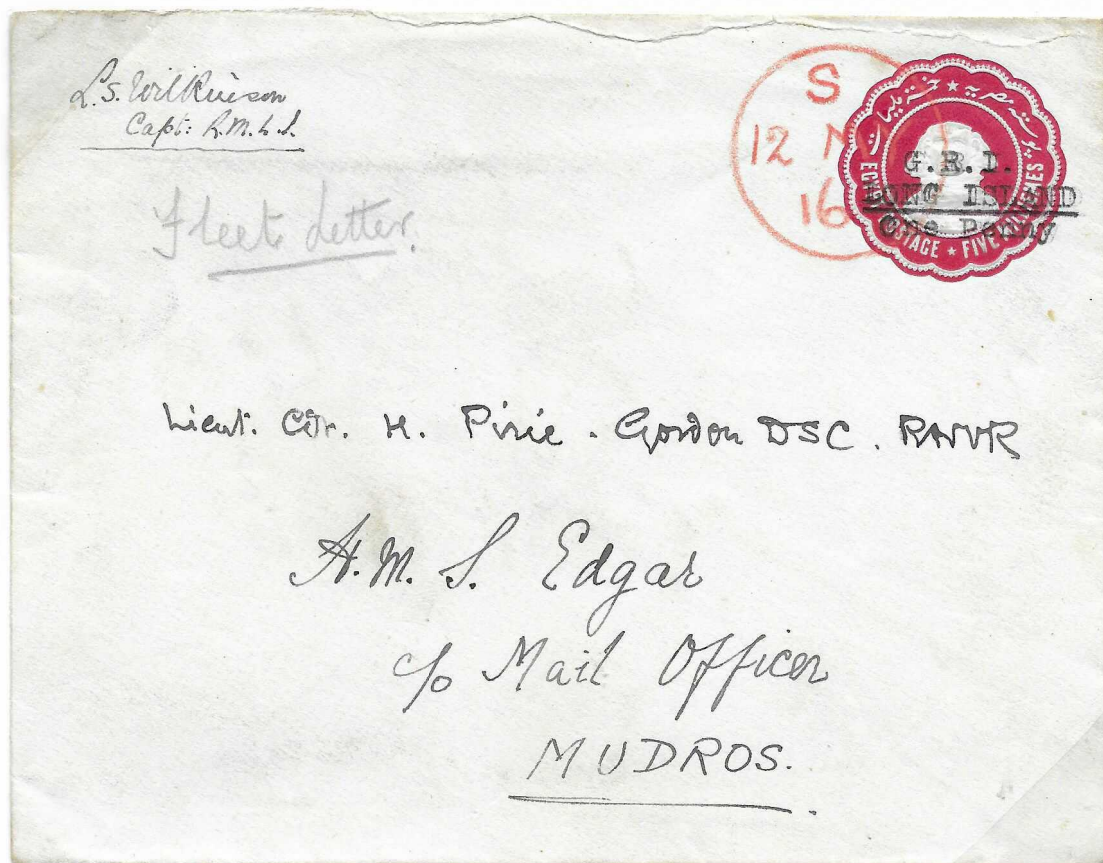 L.S. Wilkinson
Capt: R.M.L.I.
Fleet Letter.
S
12 M
16
بوستة مصرية ★ خمسة مليمات
G.R.I.
LONG ISLAND
One Penny
POSTAGE ★ FIVE MILLIEMES
Lieut. Cdr. H. Pirie-Gordon DSC. RNVR
H.M.S. Edgar
c/o Mail Officer
MUDROS.